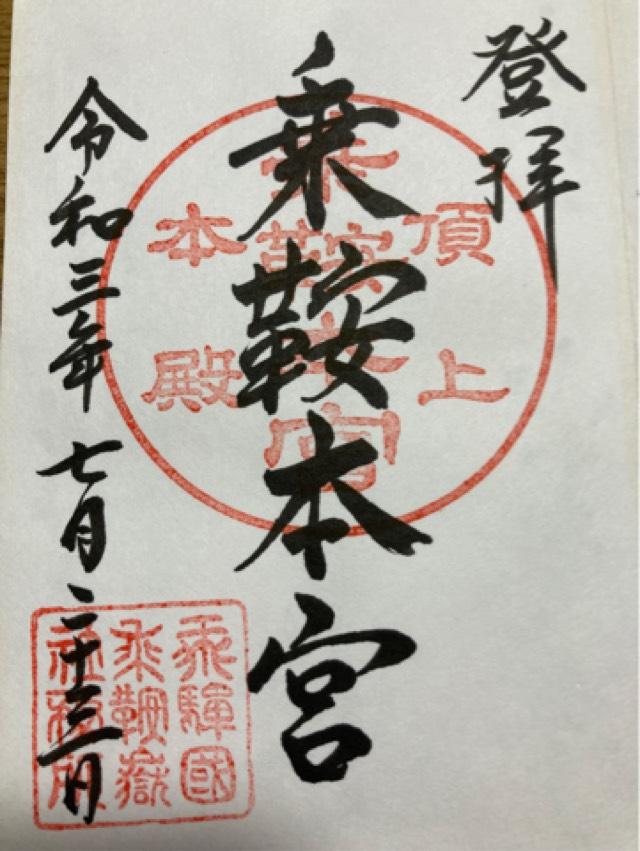 登拝
乗鞍本宮
令和三年七月二十三日
頂上
乗鞍本宮
本殿
飛騨國
乗鞍嶽
社務所